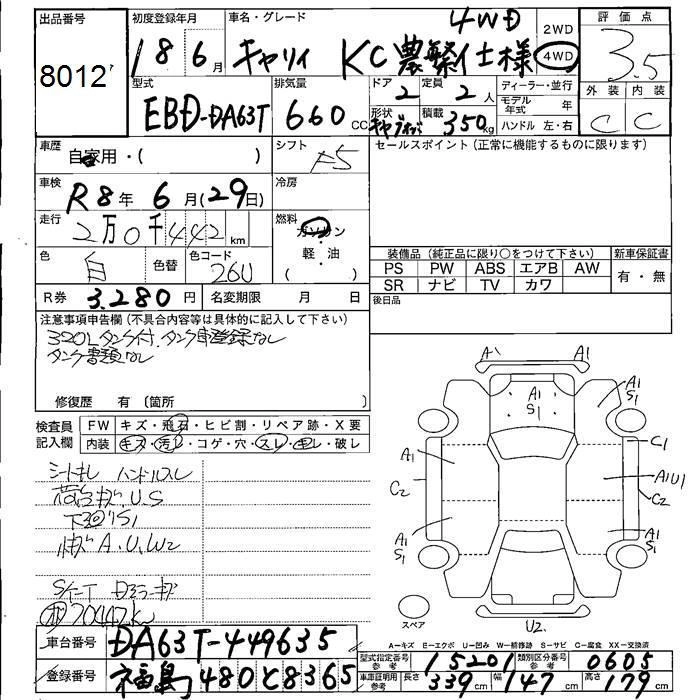 出品番号 初度登録年月 車名・グレード 4WD 2WD 評価点
8012 18年6月 キャリィ KC農繁仕様 4WD 3.5
型式 排気量 ドア 定員 ディーラー・並行 外装 内装
EBD-DA63T 660cc 2 2人 モデル年式 年 C C
形状 積載 350kg ハンドル 左・右
車歴 自家用・( ) シフト F5 セールスポイント (正常に機能するものに限ります)
車検 R8年6月(29日) 冷房
走行 2万0千442km 燃料 ガソリン・軽・油 ( )
色 白 色替 色コード 26U
装備品 (純正品に限り○をつけて下さい) 新車保証書
PS PW ABS エアB AW 有・無
SR ナビ TV カワ
R券 3,280円 名変期限 月 日 後日品
注意事項申告欄 (不具合内容等は具体的に記入して下さい)
320Lタンク付、タンク車登録なし
タンク書類なし
修復歴 有 (箇所 )
検査員記入欄 FW キズ・飛石・ヒビ割・リペア跡・X要
内装 キズ・汚レ・コゲ・穴・スレ・キレ・破レ
シートキレ ハンドルスレ
荷台キズ、U、S
下回りS1
A、U、W2
A1 A1
A1 S1
A1 S1
A1 C1
C2 A1U1
C2
A1 S1 A1 S1
スペア U2
A=キズ E=エクボ U=凹み W=補修跡 S=サビ C=腐食 XX=交換済
車台番号 DA63T-449635
登録番号 福島 480 と 8365
型式指定番号 参考 15201 類別区分番号 参考 0605
車庫証明用 参考 長さ 339cm 幅 147cm 高さ 179cm